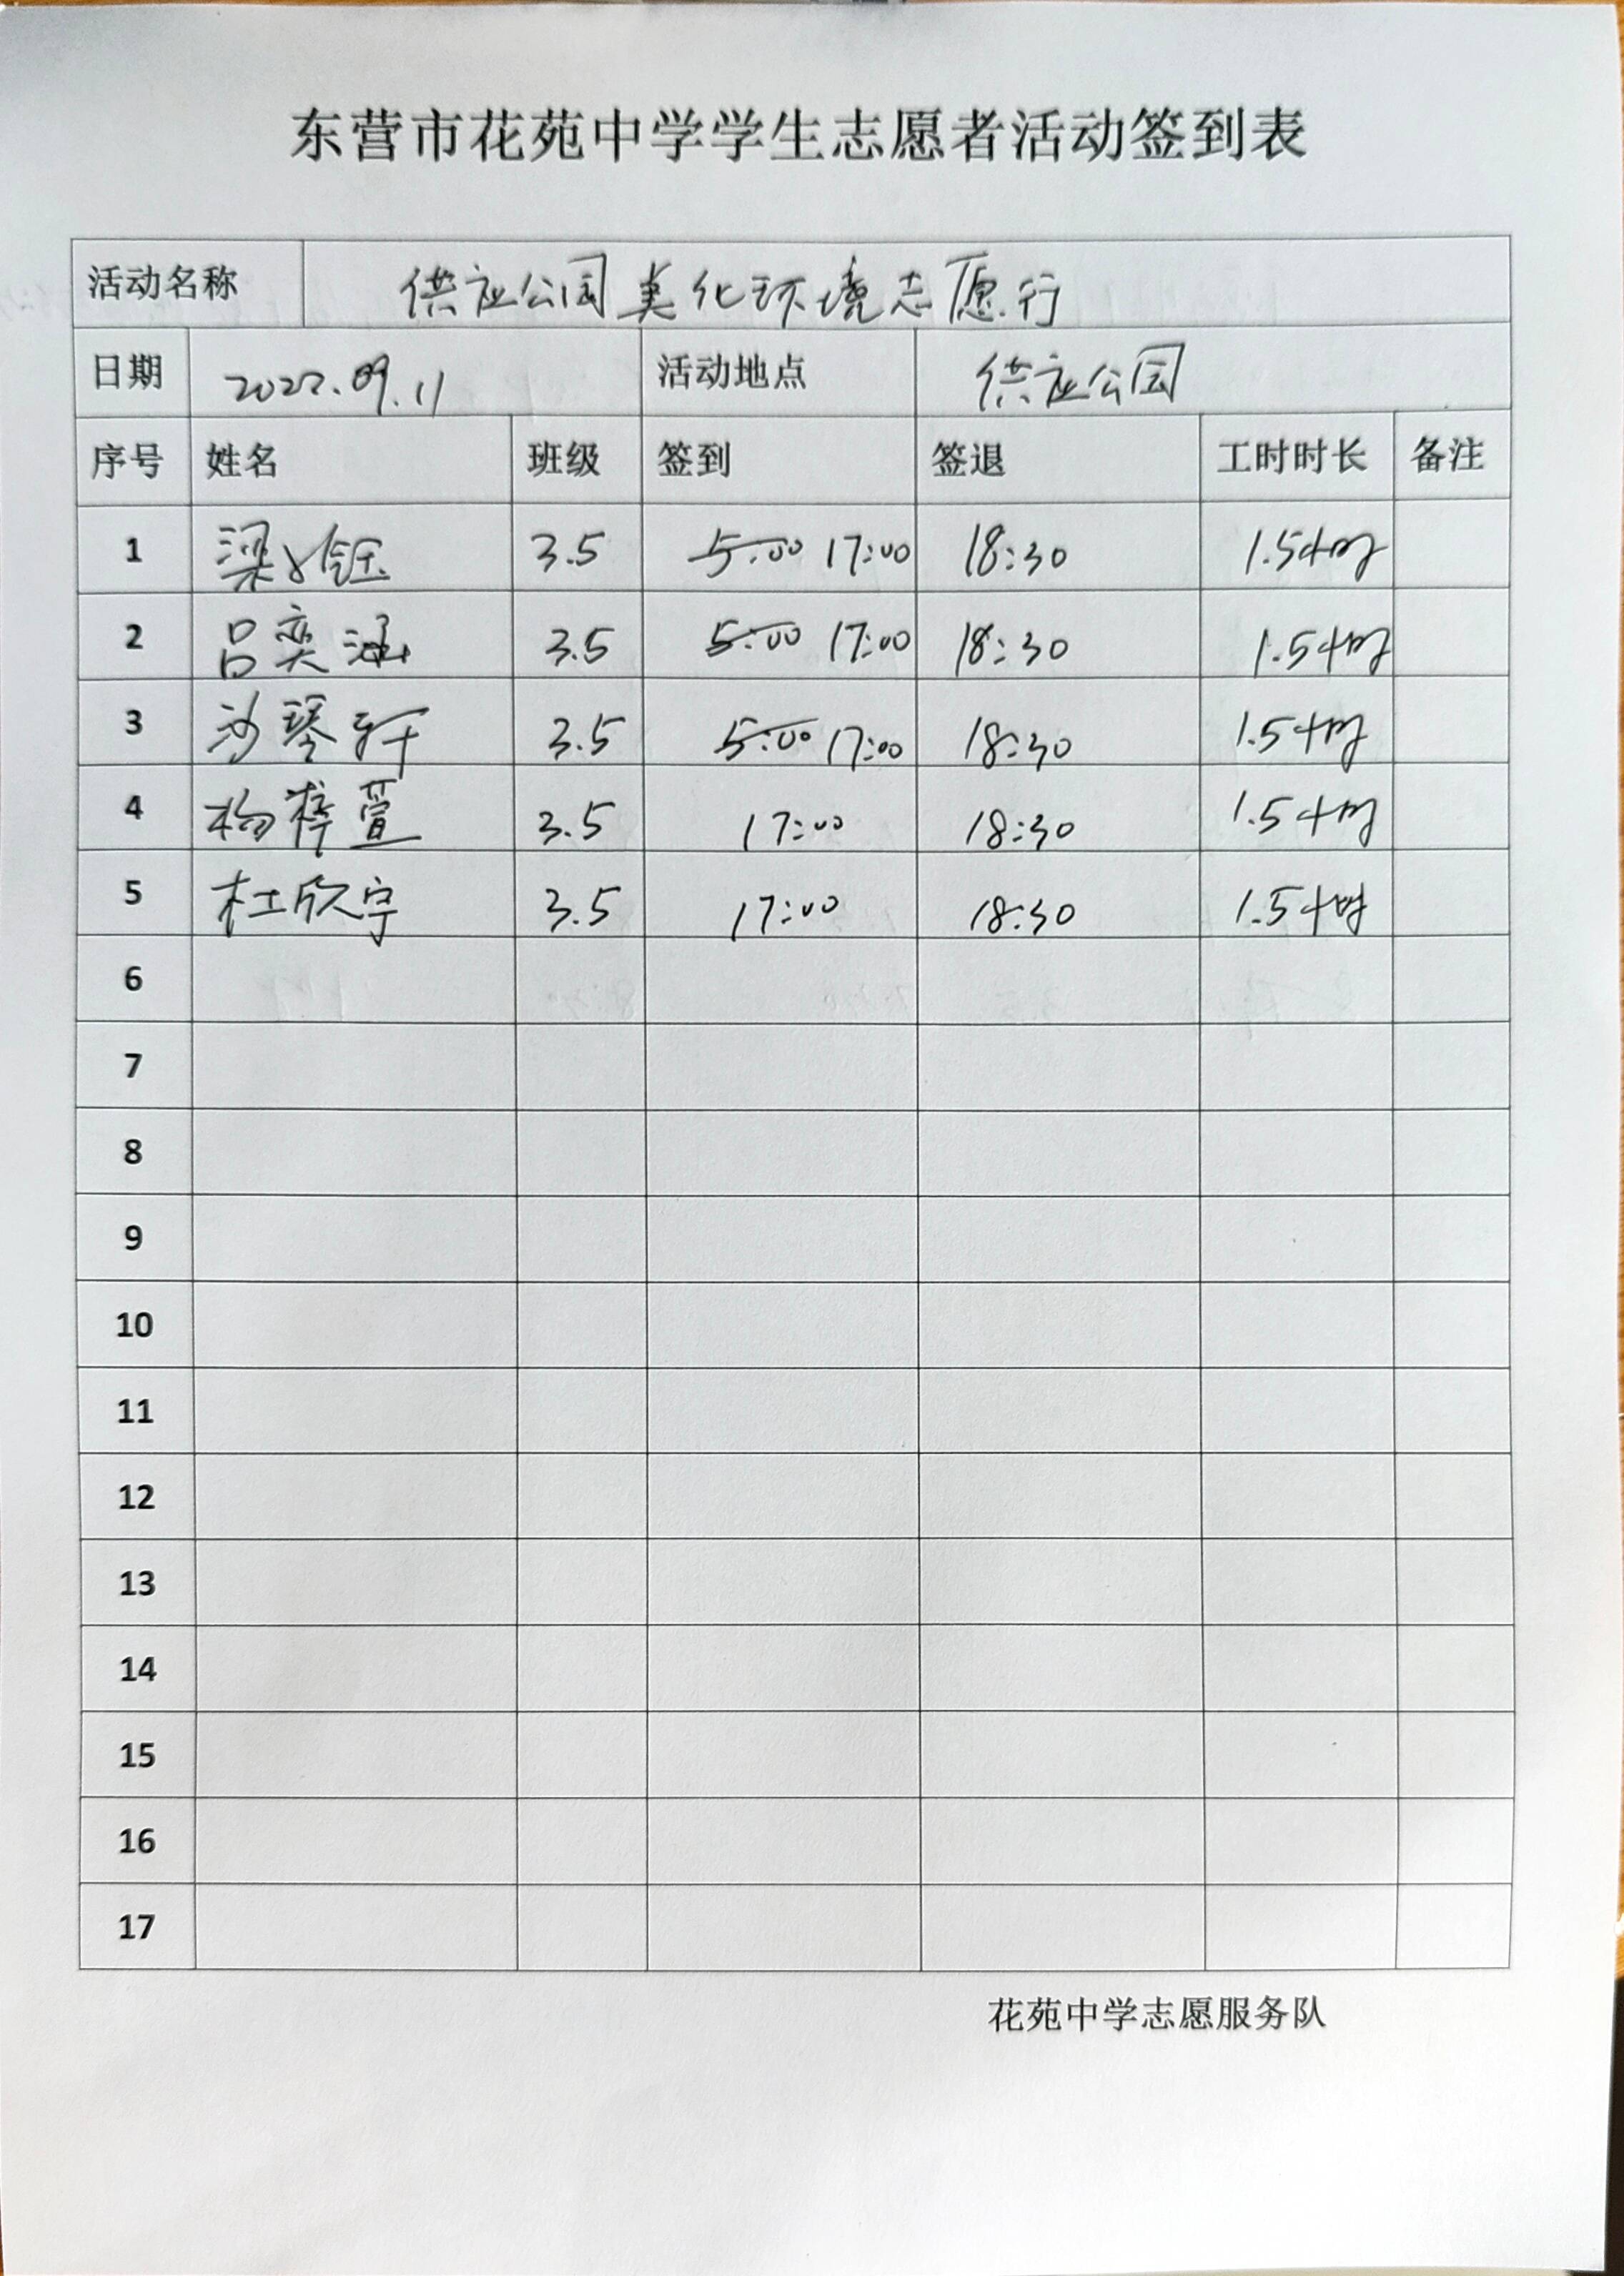 东营市花苑中学学生志愿者活动签到表
活动名称 供应公园美化环境志愿行
日期 2022.09.11 活动地点 供应公园
序号 姓名 班级 签到 签退 工时时长 备注
1 梁 钰 3.5 5:00 17:00 18:30 1.5小时
2 吕奕涵 3.5 5:00 17:00 18:30 1.5小时
3 沙琴轩 3.5 5:00 17:00 18:30 1.5小时
4 杨梓萱 3.5 17:00 18:30 1.5小时
5 杜欣宇 3.5 17:00 18:30 1.5小时
6
7
8
9
10
11
12
13
14
15
16
17
花苑中学志愿服务队